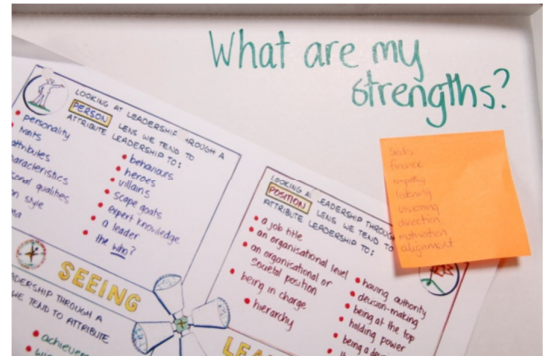 What are my
strengths?
LOOKING AT LEADERSHIP THROUGH A
PERSON LENS WE TEND TO
ATTRIBUTE LEADERSHIP TO:
• personality
• traits
attributes
characteristics
qualities
style
• behaviours
• heroes
• villains
• scape goats
• expert knowledge
• a leader
• the who?
LOOKING AT LEADERSHIP THROUGH
POSITION LENS WE TEND TO
ATTRIBUTE LEADERSHIP TO:
• a job title
• an organisational level
• an organisational or
societal position
• being in charge
• hierarchy
• having authority
• decision-making
• being at the top
• holding power
finance
empathy
listening
visioning
direction
motivation
alignment
SEEING
THROUGH A
WE TEND TO ATTRIBUTE